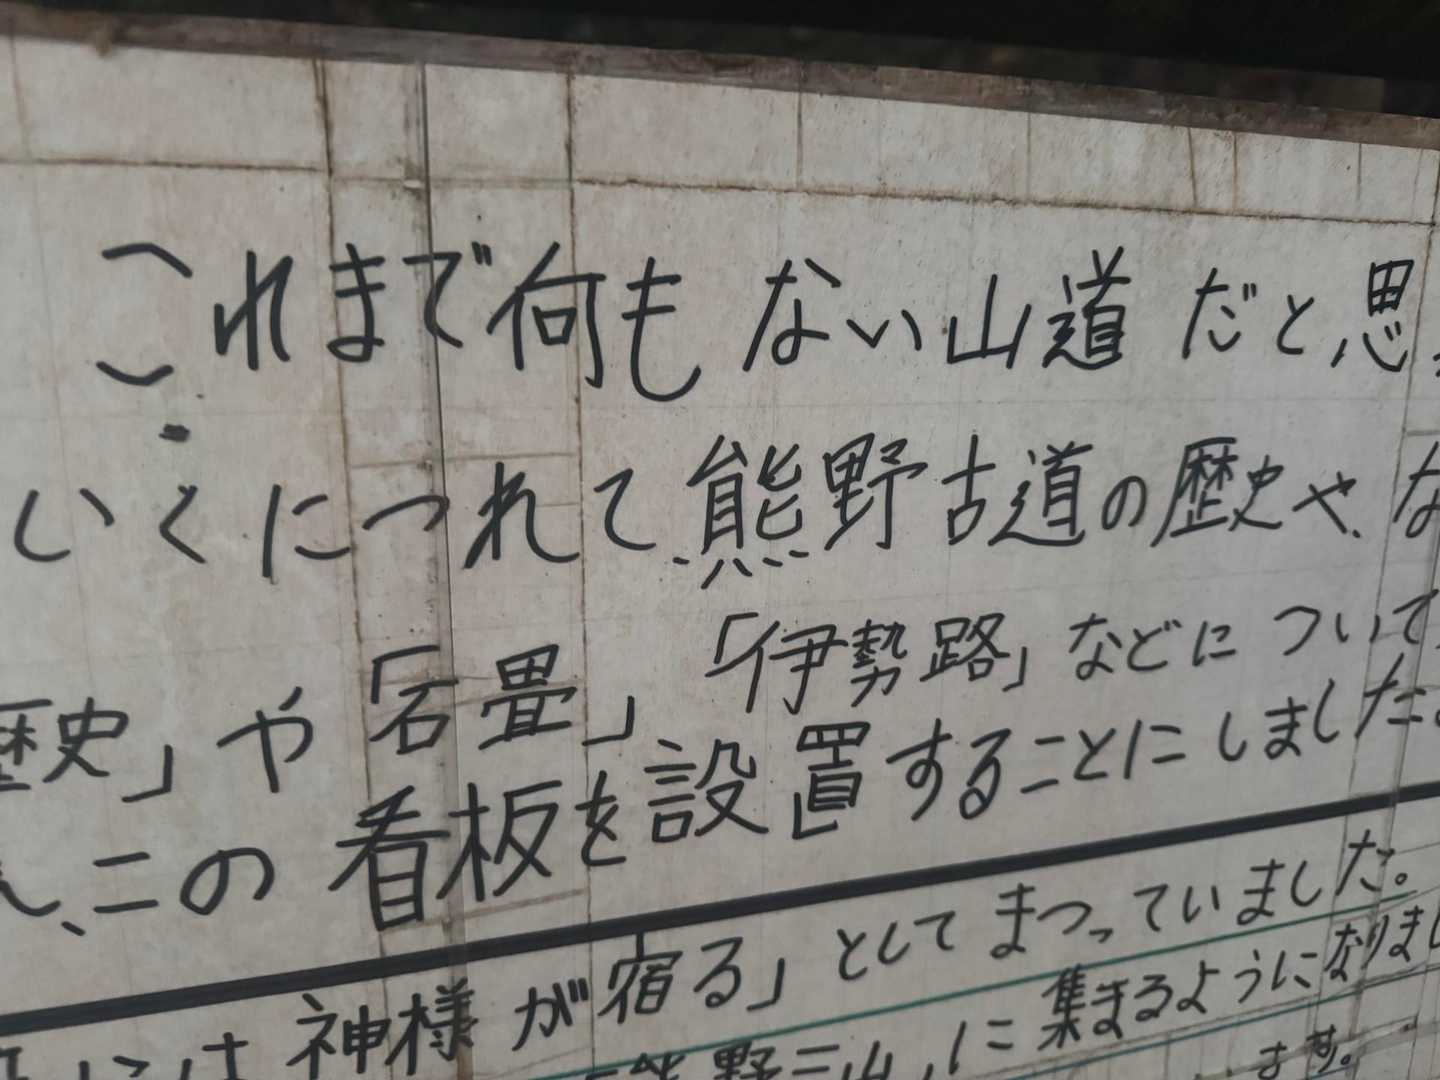 これまで何もない山道だと思
いくにつれて、熊野古道の歴史や、な
歴史」や「石畳」、「伊勢路」などについて
、この看板を設置することにしました。
には神様が宿る」としてまつっていました。
「熊野三山」に集まるようになりまし
ます。